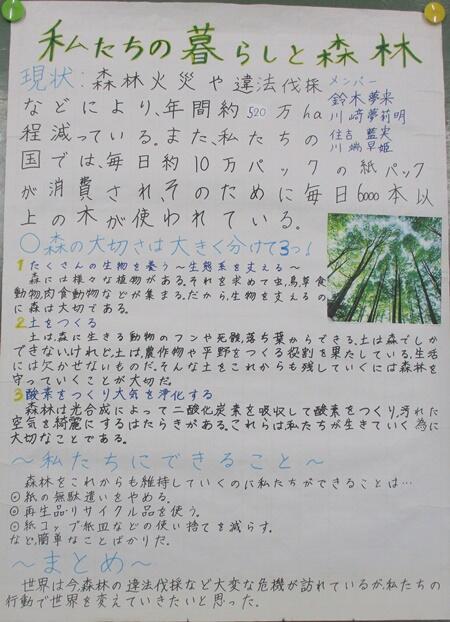 私たちの暮らしと森林
現状:森林火災や違法伐採
メンバー
鈴木夢来
川崎夢莉明
住吉 藍実
川端早姫
などにより、年間約520万ha
程減っている。また、私たちの
国では、毎日約10万パックの紙パック
が消費され、そのために毎日6000本以
上の木が使われている。
○森の大切さは大きく分けて3つ!
1 たくさんの生物を養う~生態系を支える~
森には様々な植物がある。それを求めて虫、鳥、草食
動物、肉食動物などが集まる。だから、生物を支えるの
に森は大切である。
2 土をつくる
土は、森に生きる動物のフンや死骸、落ち葉からできる。土は森でしか
できない。けれど、土は、農作物や平野をつくる役割を果たしている。生活
には欠かせないものだ。そんな土をこれからも残していくには森林を
守っていくことが大切だ。
3 酸素をつくり大気を浄化する
森林は光合成によって二酸化炭素を吸収して酸素をつくり、汚れた
空気を綺麗にするはたらきがある。これらは、私たちが生きていく為に
大切なことである。
~私たちにできること~
森林をこれからも維持していくのに私たちができることは…
◎紙の無駄遣いをやめる。
◎再生品・リサイクル品を使う。
◎紙コップ・紙皿などの使い捨てを減らす。
など、簡単なことばかりだ。
~まとめ~
世界は今、森林の違法伐採など大変な危機が訪れているが、私たちの
行動で世界を変えていきたいと思った。